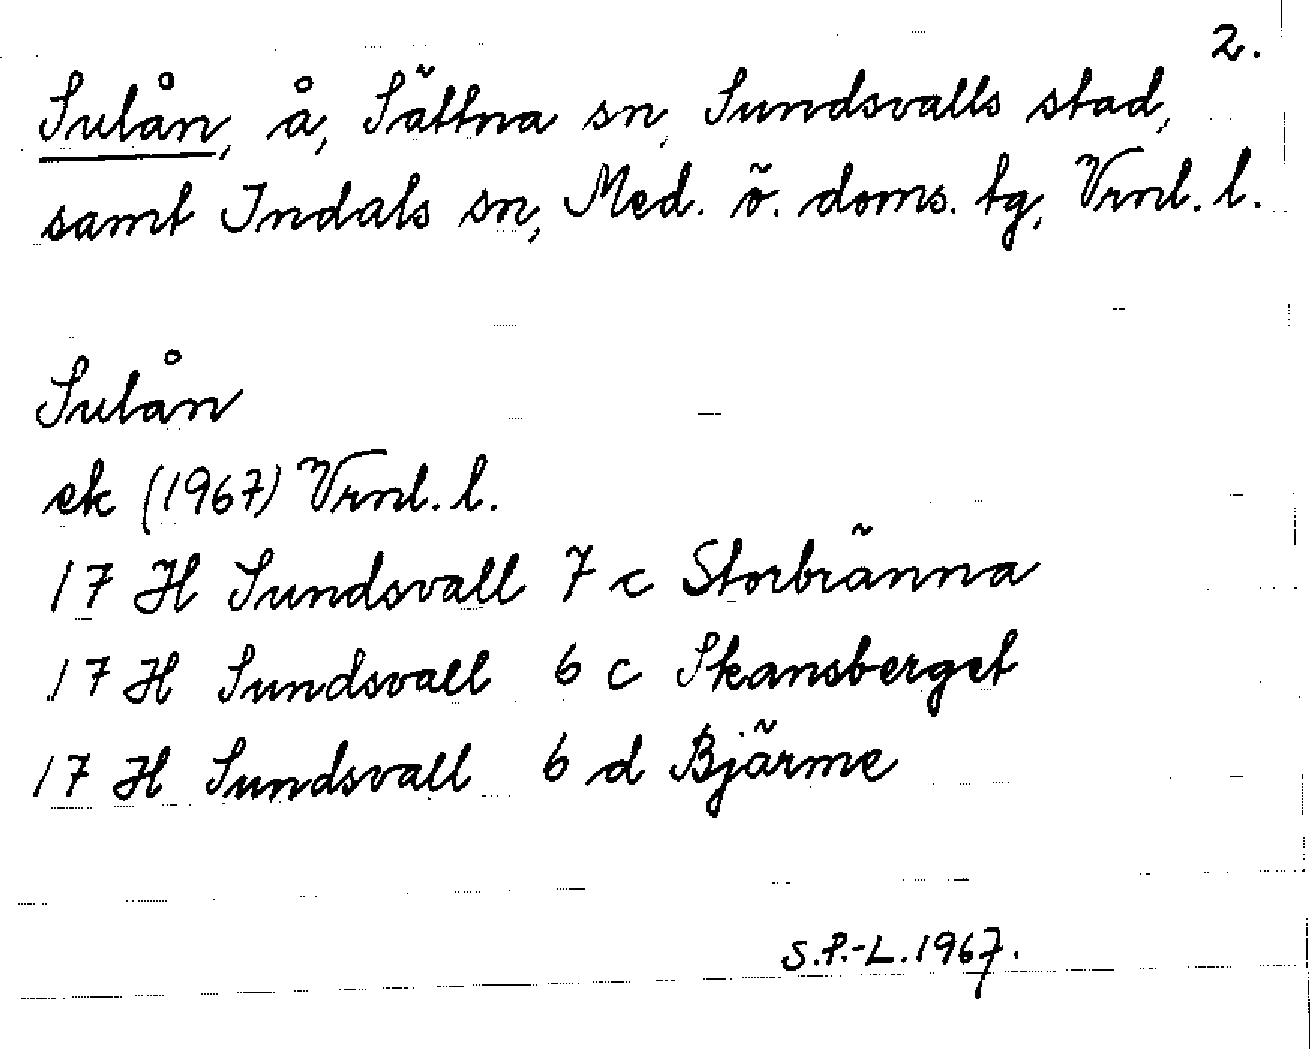 2.
Sulån, å, Sättna sn, Sundsvalls stad,
samt Indals sn, Med. ö. doms. tg, Vrnl. l.
Sulån
ek (1967) Vrnl. l.
17 H Sundsvall 7 c Storbränna
17 H Sundsvall 6 c Skansberget
17 H Sundsvall 6 d Bjärme
S.P.-L. 1967.